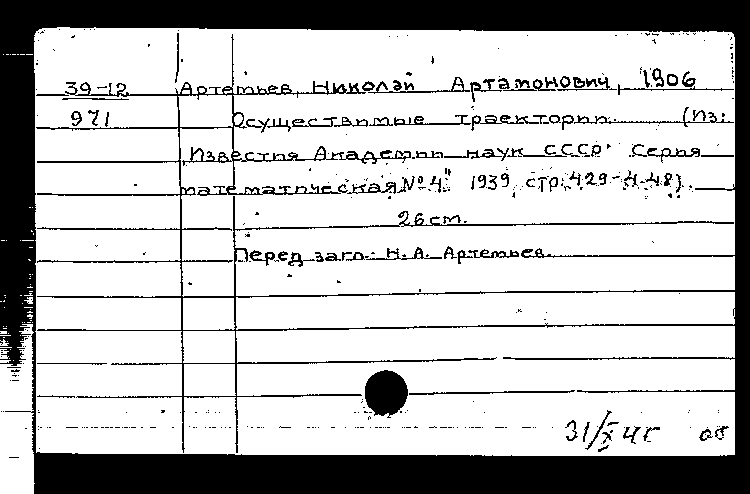 39-12 Артемьев, Николай Артамонович, 1906
971 Осуществимые траектории. (Из:
"Известия Академии наук СССР. Серия
математическая № 4" 1939, стр. 429-448).
26 cm.
Перед загл.: Н. А. Артемьев.
31/X 45 об